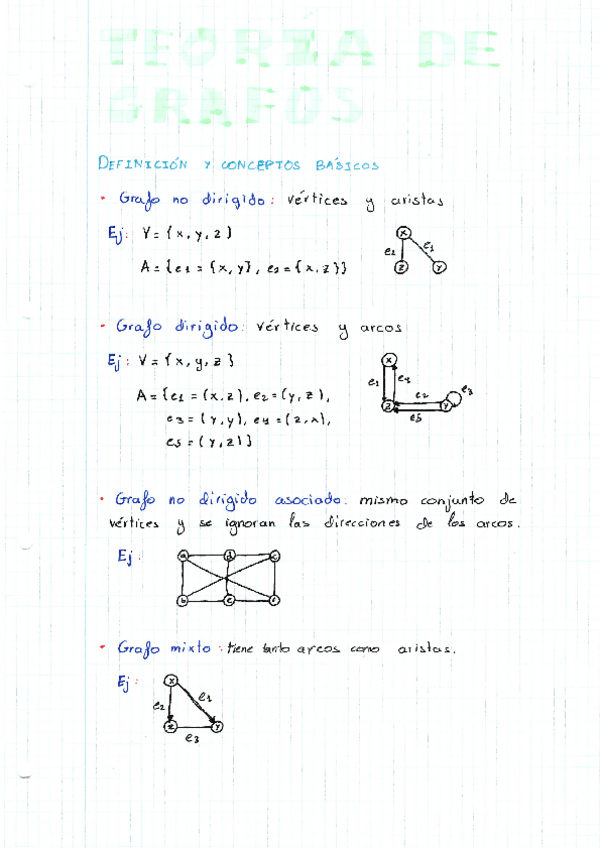 TEORÍA DE
GRAFOS
DEFINICIÓN Y CONCEPTOS BÁSICOS
· Grafo no dirigido: vértices y aristas
Ej: V = {x, y, z}
A = {e1 = {x, y}, e2 = {x, z}}
x
e2 e1
z y
· Grafo dirigido: vértices y arcos
Ej: V = {x, y, z}
A = {e1 = (x, z), e2 = (y, z),
e3 = (y, y), e4 = (z, x),
e5 = (y, z)}
x
e1 e4 e2 e3
z y
e5
· Grafo no dirigido asociado: mismo conjunto de
vértices y se ignoran las direcciones de los arcos.
Ej:
a d c
b e f
· Grafo mixto: tiene tanto arcos como aristas.
Ej:
x
e2 e1
z y
e3